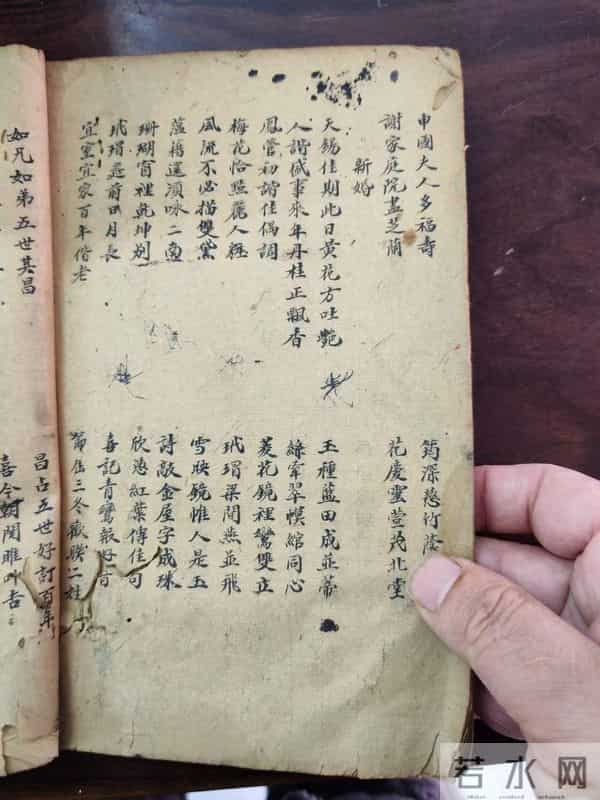 申國夫人多福壽
謝家庭院盡芝蘭
新婚
天錫佳期此日黃花方吐艷
人諧盛事來年丹桂正飄香
鳳管初諧佳偶調
梅花恰點麗人粧
風流不必描雙黛
蘊藉還須咏二南
珊瑚窗裡乾坤別
玳瑁筵前日月長
宜室宜家百年偕老
如凡如第五世其昌
筠深慈竹蔭
花慶靈萱茂北堂
玉種藍田成並蒂
絲牽翠幙綰同心
菱花鏡裡鸞雙立
玳瑁梁間燕並飛
雪映鏡帷人是玉
詩敲金屋字成珠
欣 紅葉傳佳句
喜記青鸞報好音
三冬歡騰二姓
昌占五世好訂百年
喜今朝関雎叶吉
若水网